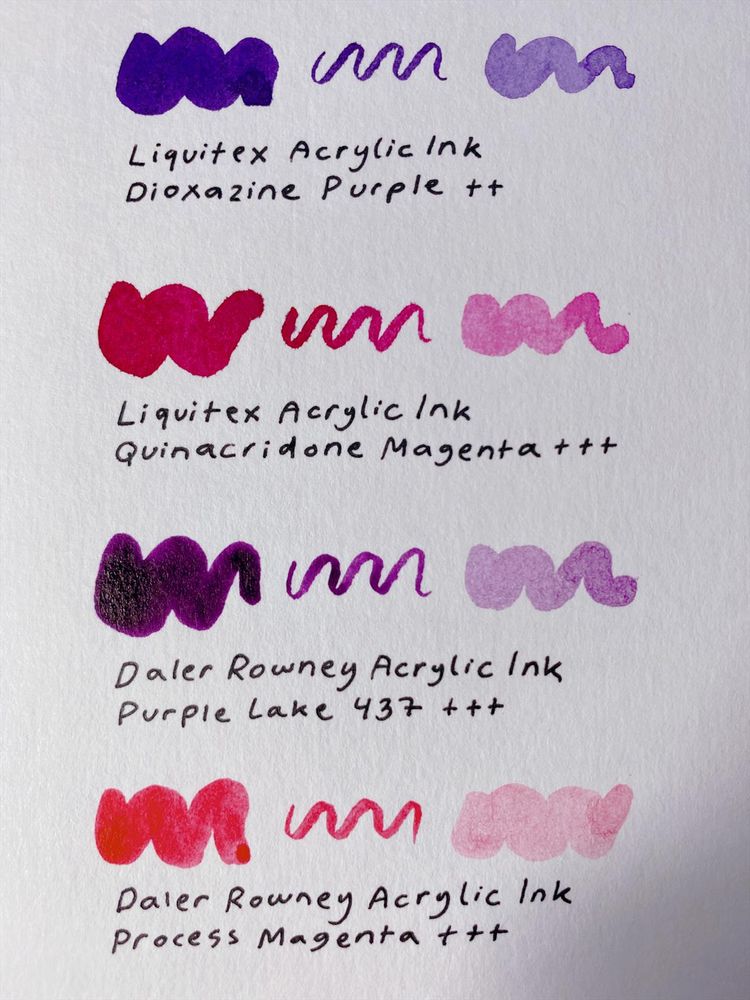 Liquitex Acrylic Ink
Dioxazine Purple ++
Liquitex Acrylic Ink
Quinacridone Magenta +++
Daler Rowney Acrylic Ink
Purple Lake 437 +++
Daler Rowney Acrylic Ink
Process Magenta +++